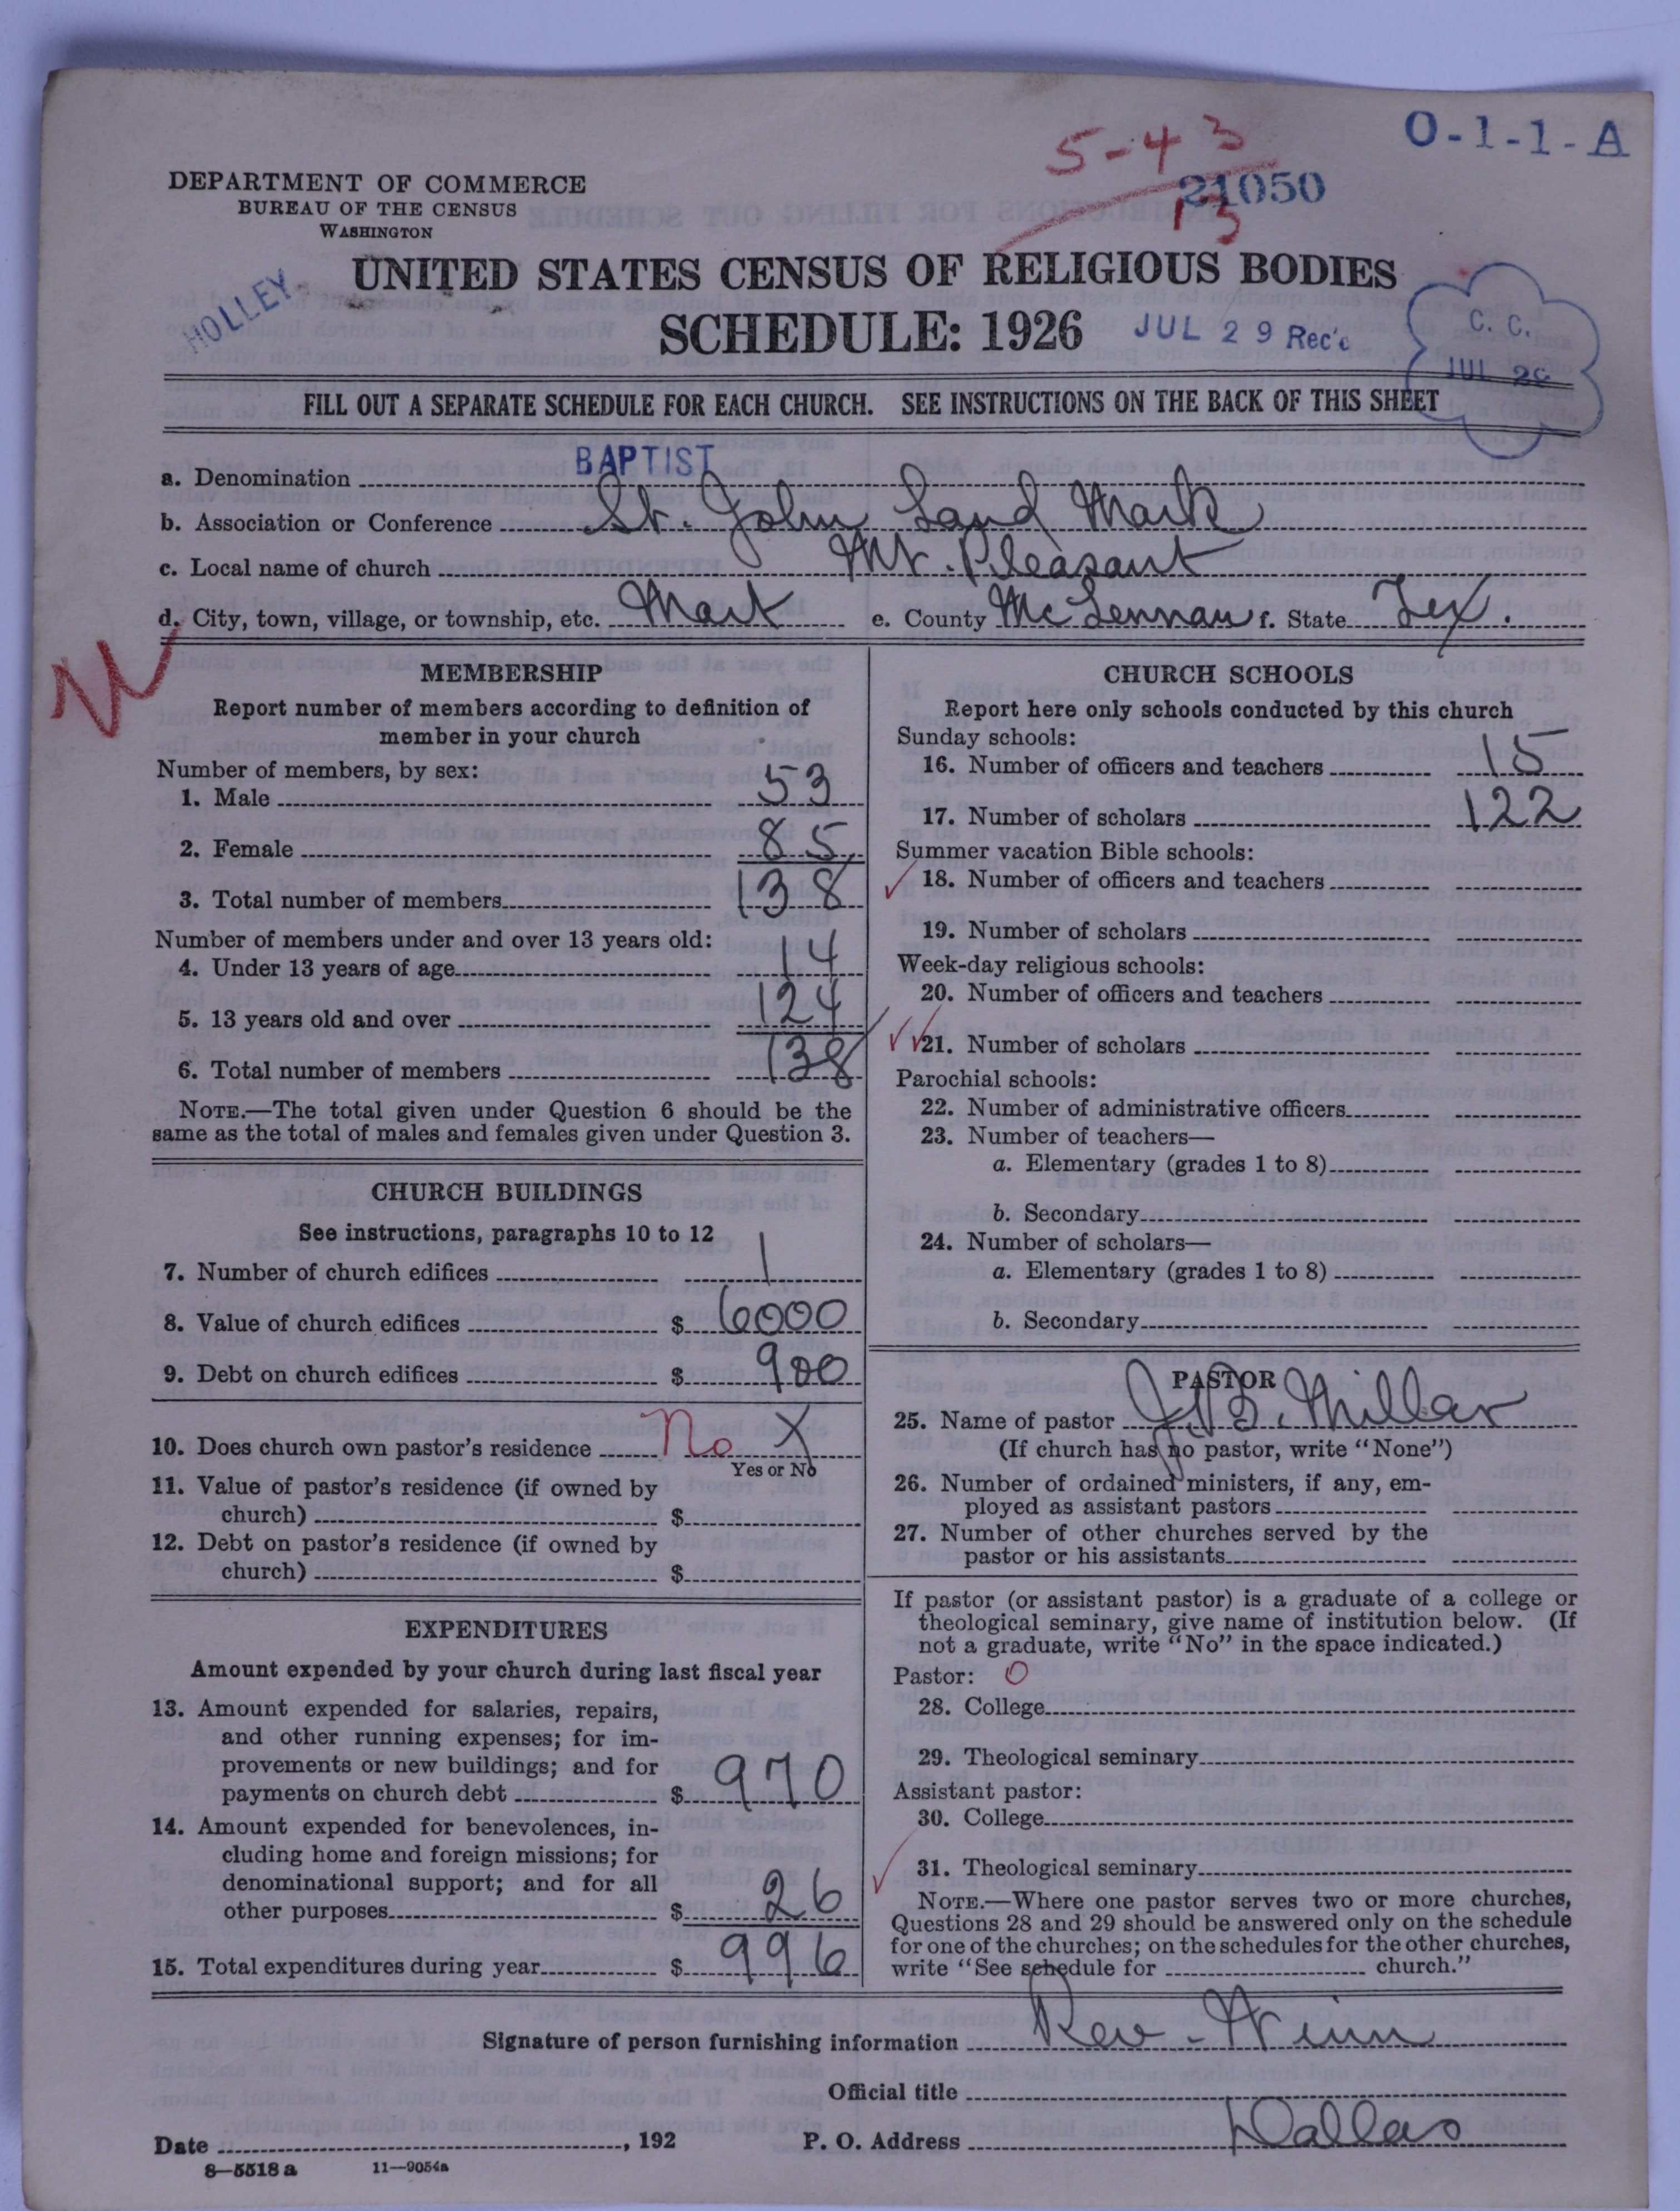 O-1-1-A
5-43
21050
13
DEPARTMENT OF COMMERCE
BUREAU OF THE CENSUS
WASHINGTON
HOLLEY
UNITED STATES CENSUS OF RELIGIOUS BODIES
SCHEDULE: 1926
JUL 29 Rec'd
C. C.
JUL 29
FILL OUT A SEPARATE SCHEDULE FOR EACH CHURCH. SEE INSTRUCTIONS ON THE BACK OF THIS SHEET
a. Denomination BAPTIST
b. Association or Conference St. John Land Mark
c. Local name of church Mt. Pleasant
d. City, town, village, or township, etc. Mart e. County McLennan f. State Tex.
MEMBERSHIP
Report number of members according to definition of
member in your church
Number of members, by sex:
1. Male 53
2. Female 85
3. Total number of members 138
Number of members under and over 13 years old:
4. Under 13 years of age 14
5. 13 years old and over 124
6. Total number of members 138
NOTE.—The total given under Question 6 should be the
same as the total of males and females given under Question 3.
CHURCH BUILDINGS
See instructions, paragraphs 10 to 12
7. Number of church edifices 1
8. Value of church edifices $ 6000
9. Debt on church edifices $ 900
10. Does church own pastor's residence No X
Yes or No
11. Value of pastor's residence (if owned by
church) $
12. Debt on pastor's residence (if owned by
church) $
EXPENDITURES
Amount expended by your church during last fiscal year
13. Amount expended for salaries, repairs,
and other running expenses; for im-
provements or new buildings; and for
payments on church debt $ 970
14. Amount expended for benevolences, in-
cluding home and foreign missions; for
denominational support; and for all
other purposes $ 26
15. Total expenditures during year $ 996
CHURCH SCHOOLS
Report here only schools conducted by this church
Sunday schools:
16. Number of officers and teachers 15
17. Number of scholars 122
Summer vacation Bible schools:
18. Number of officers and teachers
19. Number of scholars
Week-day religious schools:
20. Number of officers and teachers
21. Number of scholars
Parochial schools:
22. Number of administrative officers
23. Number of teachers—
a. Elementary (grades 1 to 8)
b. Secondary
24. Number of scholars—
a. Elementary (grades 1 to 8)
b. Secondary
PASTOR
25. Name of pastor J. B. Millar
(If church has no pastor, write "None")
26. Number of ordained ministers, if any, em-
ployed as assistant pastors
27. Number of other churches served by the
pastor or his assistants
If pastor (or assistant pastor) is a graduate of a college or
theological seminary, give name of institution below. (If
not a graduate, write "No" in the space indicated.)
Pastor: O
28. College
29. Theological seminary
Assistant pastor:
30. College
31. Theological seminary
NOTE.—Where one pastor serves two or more churches,
Questions 28 and 29 should be answered only on the schedule
for one of the churches; on the schedules for the other churches,
write "See schedule for church."
Signature of person furnishing information Rev. Winn
Official title
Date , 192 P. O. Address Dallas
8—5518 a 11—9054a